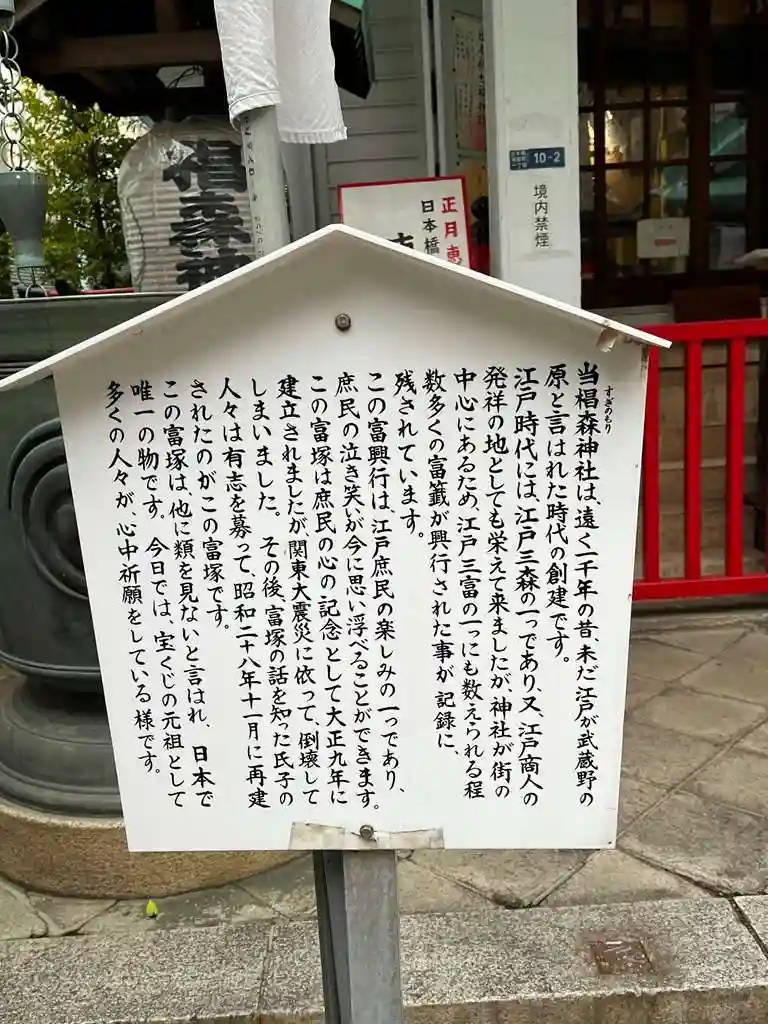 椙森神
正月恵
日本橋
10-2
境内禁煙
すぎのもり
当椙森神社は、遠く一千年の昔、未だ江戸が武蔵野の
原と言はれた時代の創建です。
江戸時代には、江戸三森の一つであり、又、江戸商人の
発祥の地としても栄えて来ましたが、神社が街の
中心にあるため、江戸三富の一つにも数えられる程
数多くの富籤が興行された事が 記録に、
残されています。
この富興行は、江戸庶民の楽しみの一つであり、
庶民の泣き笑いが今に思い浮べることができます。
この富塚は庶民の心の記念として大正九年に
建立されましたが関東大震災に依って、倒壊して
しまいました。 その後、富塚の話を知った氏子の
人々は有志を募って、昭和二十八年十一月に再建
されたのがこの富塚です。
この富塚は、他に類を見ないと言はれ、 日本で
唯一の物です。 今日では、宝くじの元祖として
多くの人々が、心中祈願をしている 様です。